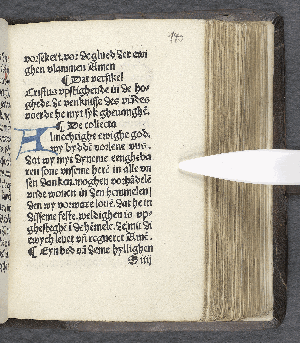 vorsekert, vor de glued der ewi
ghen vlammen Amen
¶ Dat versikel
Cristus vpstighende in de ho-
ghede. De venknisse des volkes
voerde he myt syk ghevanghē.
¶ De collecta
Almechtighe ewighe god.
wy byddē vorlene vns.
Dat wy myt dyneme eengheba
ren sone vnseme herē in alle vn
sen danken moghen vorhādelē
vnde wonen in den hemmelen
den wy vorware love. dat he in
disseme feste. weldighen is vp-
ghestegē i de hēmele. De mit di
ewych levet vñ regneret Amē.
¶ Eyn bed vā deme hyllighen
S iiij